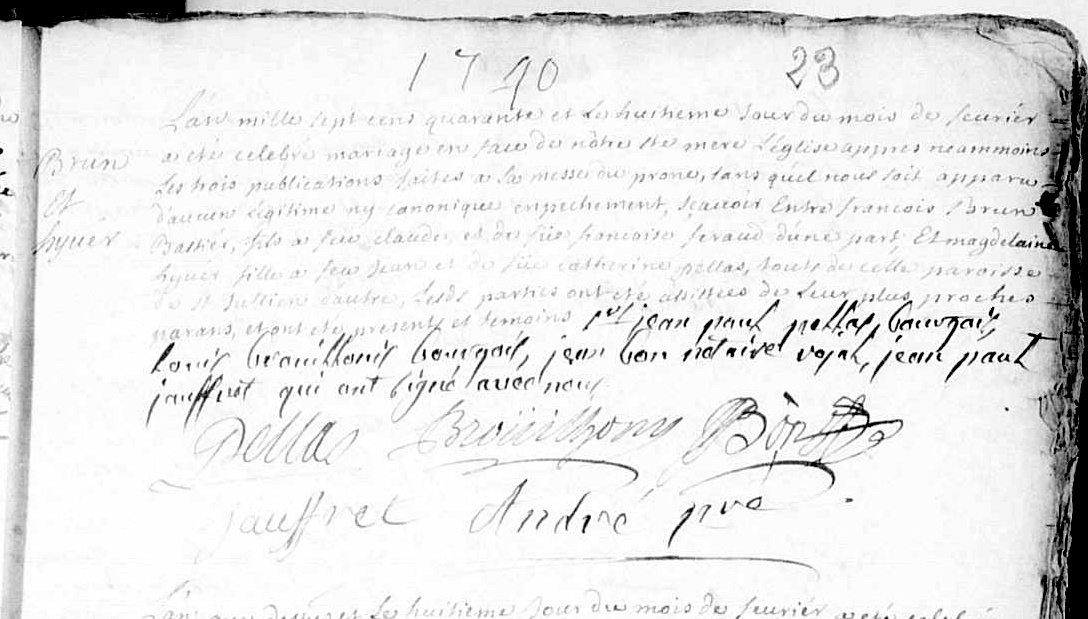 1740
23
Brun
et
hyuer
L'an mille sept cens quarante et le huitieme Jour du mois de feurier
a été celebre mariage en face de nôtre ste mere L'église appres neammoins
Les trois publications faites a la messe du prone, sans quel nous soit apparu
d'aucun légitime ny canonique enpechement, sçauoir Entre francois Brun
Bastier, fils a feu claude, et de füe francoise feraud d'une part Et magdelaine
hyuer fille a feu Jean et de füe catherine pellas, touts de celle paroisse
de st Jullien d'autre, Lesds parties ont été assistées de Leur plus proches
parans, et ont été presents et temoins srs jean paul pellas, bourgois,
louis brouillonis bourgois, jean bon notaire royal, jean paul
jauffret qui ont signé avec nous
Pellas Broüilhony Bòn
jauffret André pre
L'an que dessus et Le huitieme Jour du mois de feuriér a été celebré